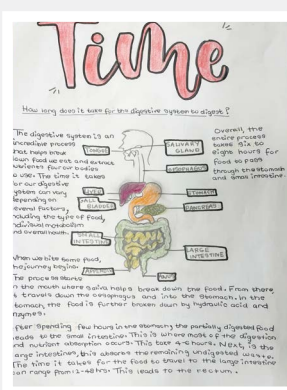 Time
How long does it take for the digestive system to digest?
The digestive system is an
incredible process
that helps break
down food we eat and extract
nutrients for our bodies
to use. The time it takes
for our digestive
system can vary
depending on
several factors,
including the type of food,
individual metabolism
and overall health.
When we bite some food,
the journey begins.
The process starts
in the mouth where saliva helps break down the food. From there,
it travels down the oesophagus and into the stomach. In the
stomach, the food is further broken down by hydraulic acid and
enzymes.
After spending few hours in the stomach, the partially digested food
leads to the small intestine. This is where most of the digestion
and nutrient absorption occurs. This take 4-6 hours. Next, is the
large intestines, this absorbs the remaining undigested waste.
The time it takes for the food to travel to the large intestine
can range from 12-48hrs. This leads to the rectum.
Overall, the
entire process
takes six to
eight hours for
food to pass
through the stomach
and small intestine.
TONGUE
SALIVARY
GLAND
OESOPHAGUS
LIVER
GALL
BLADDER
STOMACH
PANCREAS
SMALL
INTESTINE
LARGE
INTESTINE
APPENDIX
ANUS